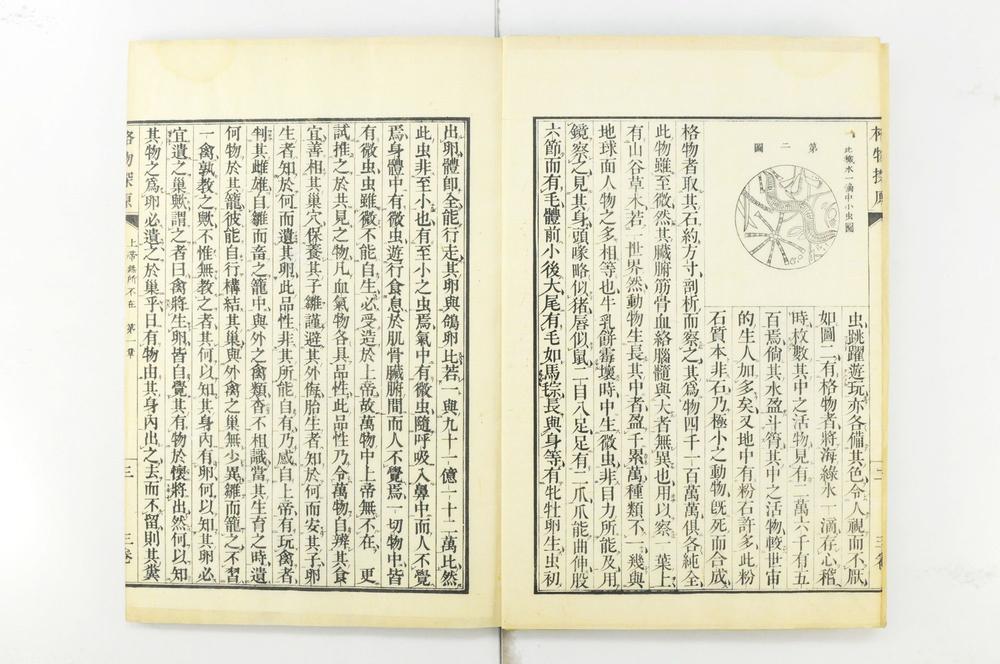 格物探原
三
三卷
此檅水一滴中小虫圖
第二圖
虫跳躍遊玩亦各備其色令人視而不厭
如圖二有格物者將海綠水一滴存心稽
時枚數其中之活物見有二萬六千有五
百焉倘其水盈斗筲其中之活物較世宙
的生人加多矣又地中有粉石許多此粉
石質本非石乃極小之動物旣死而合成
格物者取其石約方寸剖析而察之其爲物四千一百萬萬俱各純全
此物雖至微然其臟腑筋骨血絡腦髓與大者無異也用以察一葉上
有山谷草木若一世界然動物生長其中者盈千累萬種類不一幾與
地球面人物之多相等也牛乳餅霉壞時中生微虫非目力所能及用
鏡察之見其身頭喙略似猪唇似鼠二目八足足有二爪爪能曲伸股
六節而有毛體前小後大尾有毛如馬鬃長與身等有牝牡卵生虫初
出卵體卽全能行走其卵與鴿卵比若一與九十一億一十二萬比然
此虫非至小也有至小之虫焉氣中有微虫隨呼吸入鼻中而人不覺
焉身體中有微虫遊行食息於肌骨臟腑間而人不覺焉一切物中皆
有微虫虫雖微不能自生必受造於上帝故萬物中上帝無不在 更
試推之於共見之物凡血氣物各具品性此品性乃令萬物自辨其食
宜善相其巢穴保養其子雛謹避其外侮胎生者知於何而安其子卵
生者知於何而遺其卵此品性非其所能自有乃感自上帝有玩禽者
判其雌雄自雛而畜之籠中與外之禽類杳不相識當其生育之時遺
何物於其籠彼能自行構結其巢與外禽之巢無少異雛而籠之不習
一禽孰教之歟不惟無教之者其何以知其身內有卵何以知其卵必
宜遺之巢歟謂之者曰禽將生卵皆自覺其有物於懷將出然何以知
其物之爲卵必遺之於巢乎日有物由其身內出之去而不留則其糞
格物探原
上帝無所不在 第一章
三
三卷